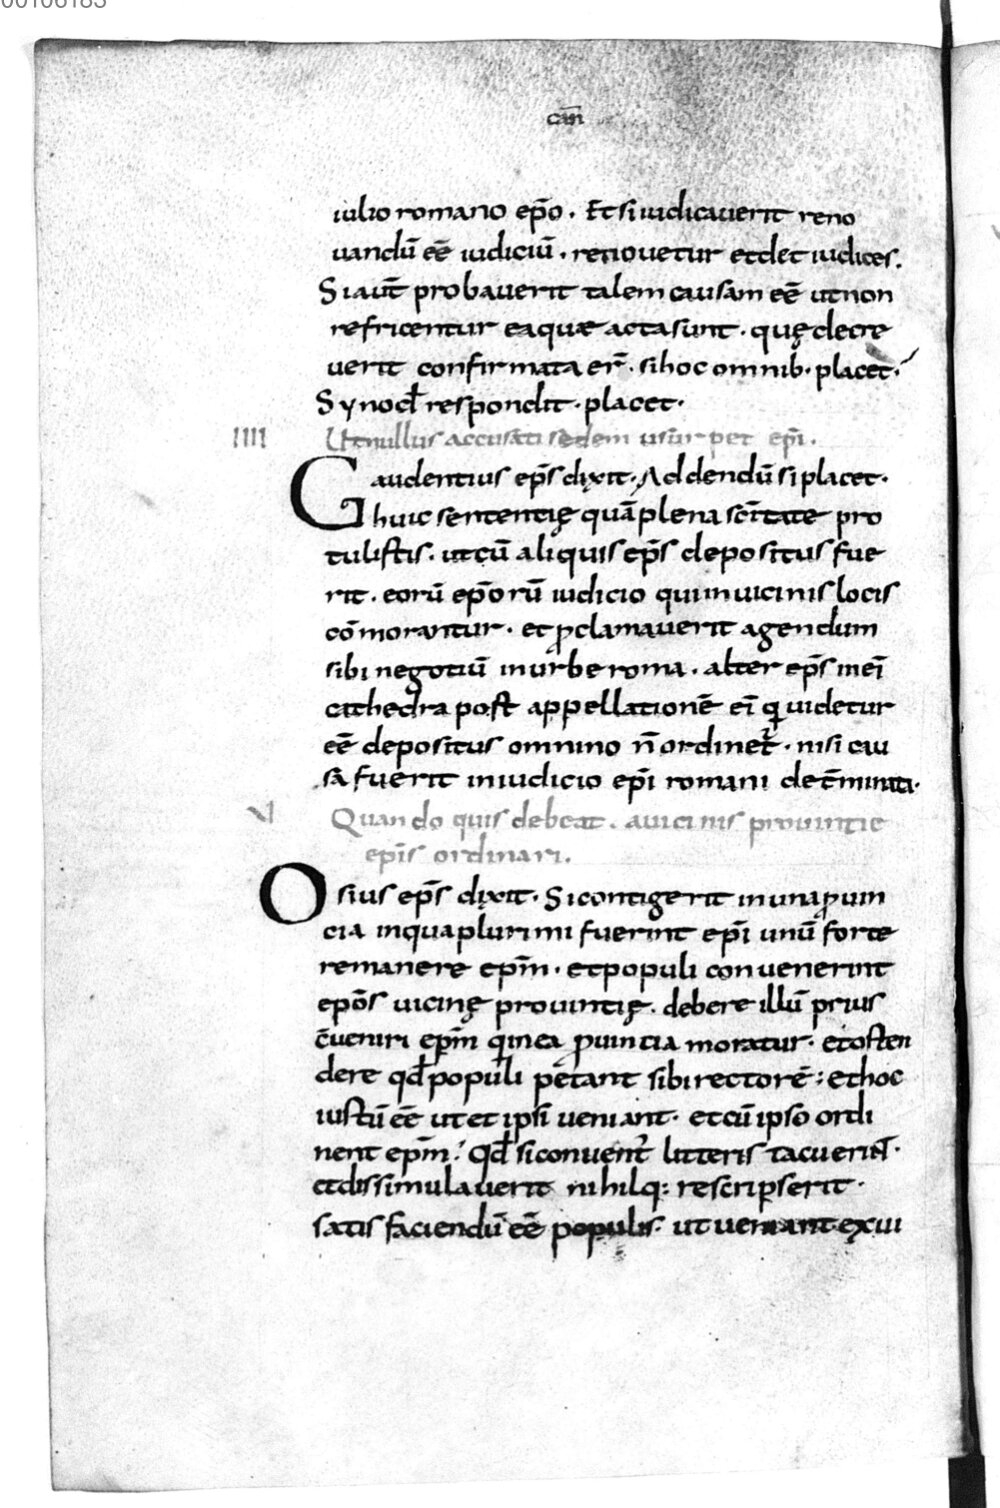 00106183
cāñ
iulio romano ep̄o. Et si iudicauerit reno
uandū eē iudiciū. renouetur et det iudices.
Si aut̄ probauerit talem causam eē ut non
refricentur ea quae acta sunt. quę decre
uerit confirmata er̄. si hoc omnib. placet.
Synod̄ respondit. placet.
IIII Ut nullus accusati sedem usurpet ep̄i.
Gaudentius ep̄s dixit. Addendū si placet.
huic sententię quā plena sc̄itate pro
tulistis. ut cū aliquis ep̄s depositus fue
rit. eorū ep̄orū iudicio qui in uicinis locis
cōmorantur. et ꝓclamauerit agendum
sibi negotiū in urbe roma. alter ep̄s in ei
cathedra post appellationē ei q̄ uidetur
eē depositus omnino n̄ ordinet̄. nisi cau
sā fuerit in iudicio ep̄i romani det̄minata.
V Quando quis debeat. a uicinis prouintie
ep̄is ordinari.
Osius ep̄s dixit. Si contigerit in una ꝓuin
cia in qua plurimi fuerint ep̄i unū forte
remanere ep̄m. et populi conuenerint
ep̄os uicinę prouintię. debere illū prius
c̄ueniri ep̄m q̄ in ea ꝓuintia moratur. et osten
dere qd̄ populi petant sibi rectorē: et hoc
iustū eē ut et ipsi ueniant. et cū ipso ordi
nent ep̄m. Qd̄ si conuent̄ litteris tacuerit.
et dissimulauerit nihilq: rescripserit.
satis faciendū eē populis. ut ueniant ex ui